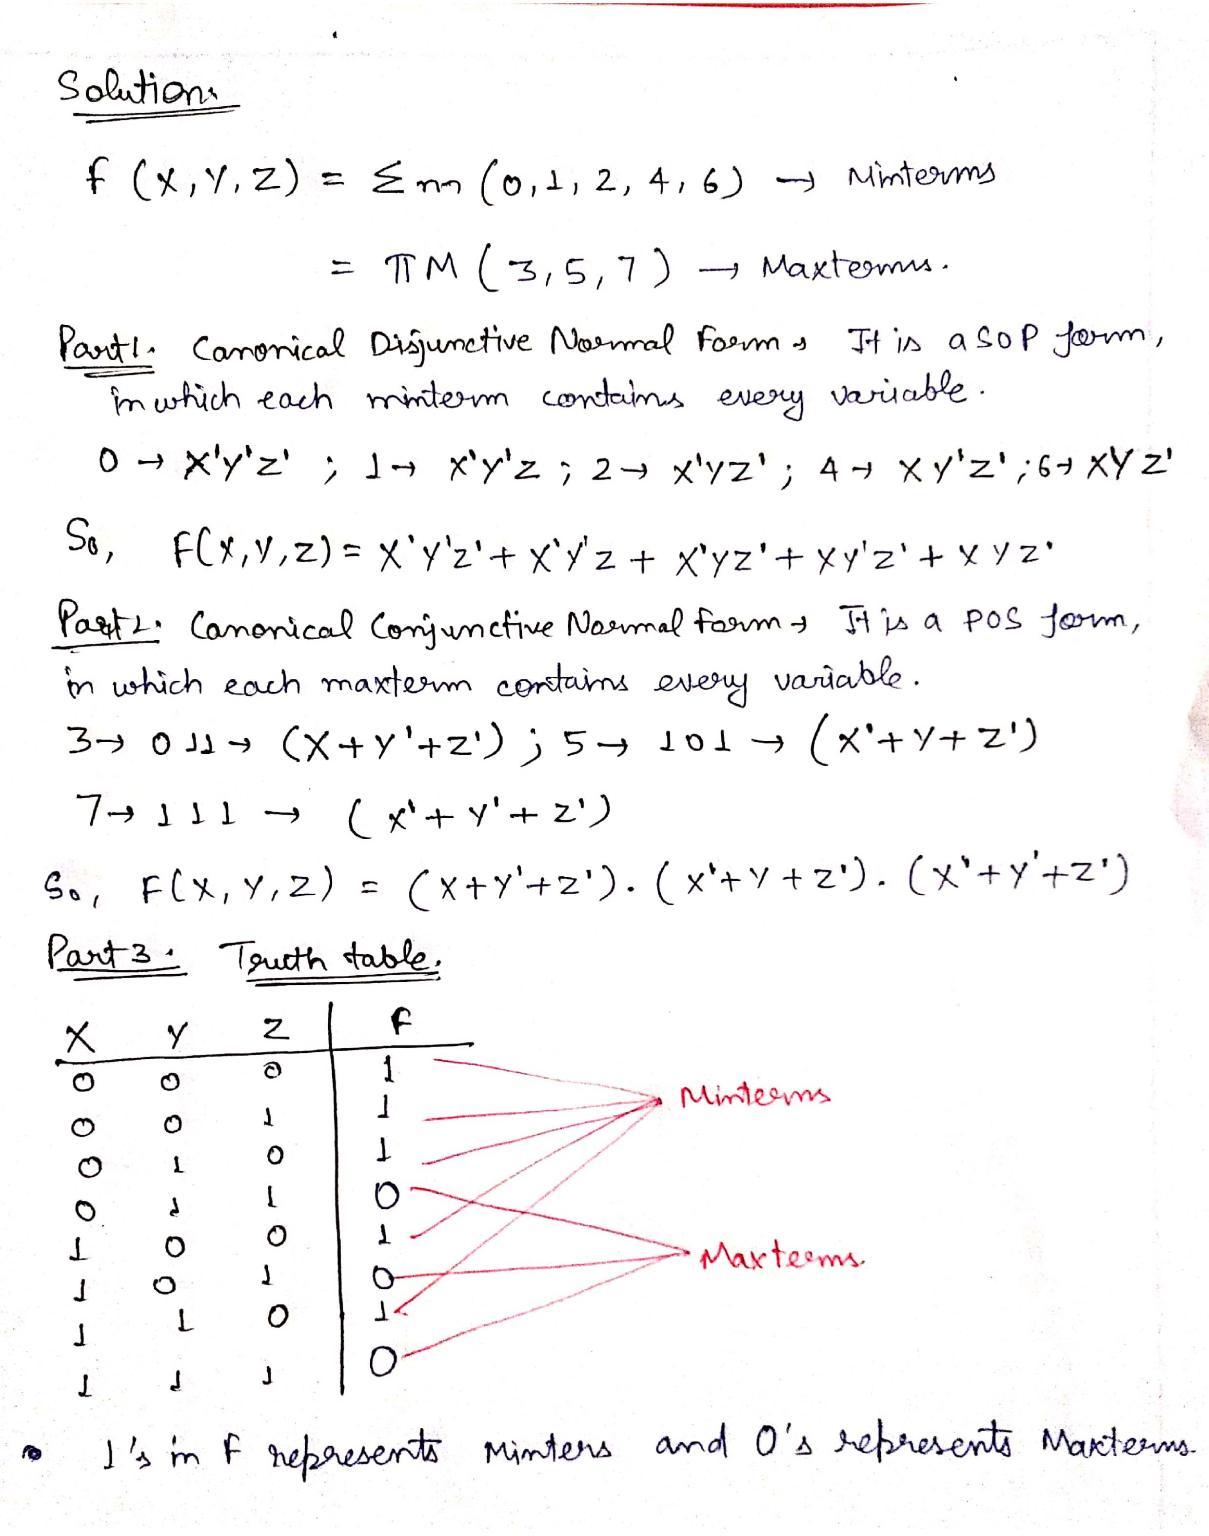 Solution:
f (X, Y, Z) = Σm (0, 1, 2, 4, 6) → Minterms
= πM (3, 5, 7) → Maxterms.
Part 1. Canonical Disjunctive Normal Form → It is a SOP form,
in which each minterm contains every variable.
0 → X'Y'Z' ; 1 → X'Y'Z ; 2 → X'YZ' ; 4 → XY'Z' ; 6 → XYZ'
So, F(X,Y,Z) = X'Y'Z' + X'Y'Z + X'YZ' + XY'Z' + XYZ'
Part 2. Canonical Conjunctive Normal Form → It is a POS form,
in which each maxterm contains every variable.
3 → 011 → (X+Y'+Z') ; 5 → 101 → (X'+Y+Z')
7 → 111 → (X'+Y'+Z')
So, F(X, Y, Z) = (X+Y'+Z'). (X'+Y+Z'). (X'+Y'+Z')
Part 3. Truth table.
X Y Z f
0 0 0 1
0 0 1 1
0 1 0 1
0 1 1 0
1 0 0 1
1 0 1 0
1 1 0 1
1 1 1 0
Minterms
Maxterms.
• 1's in f represents Minters and 0's represents Maxterms.